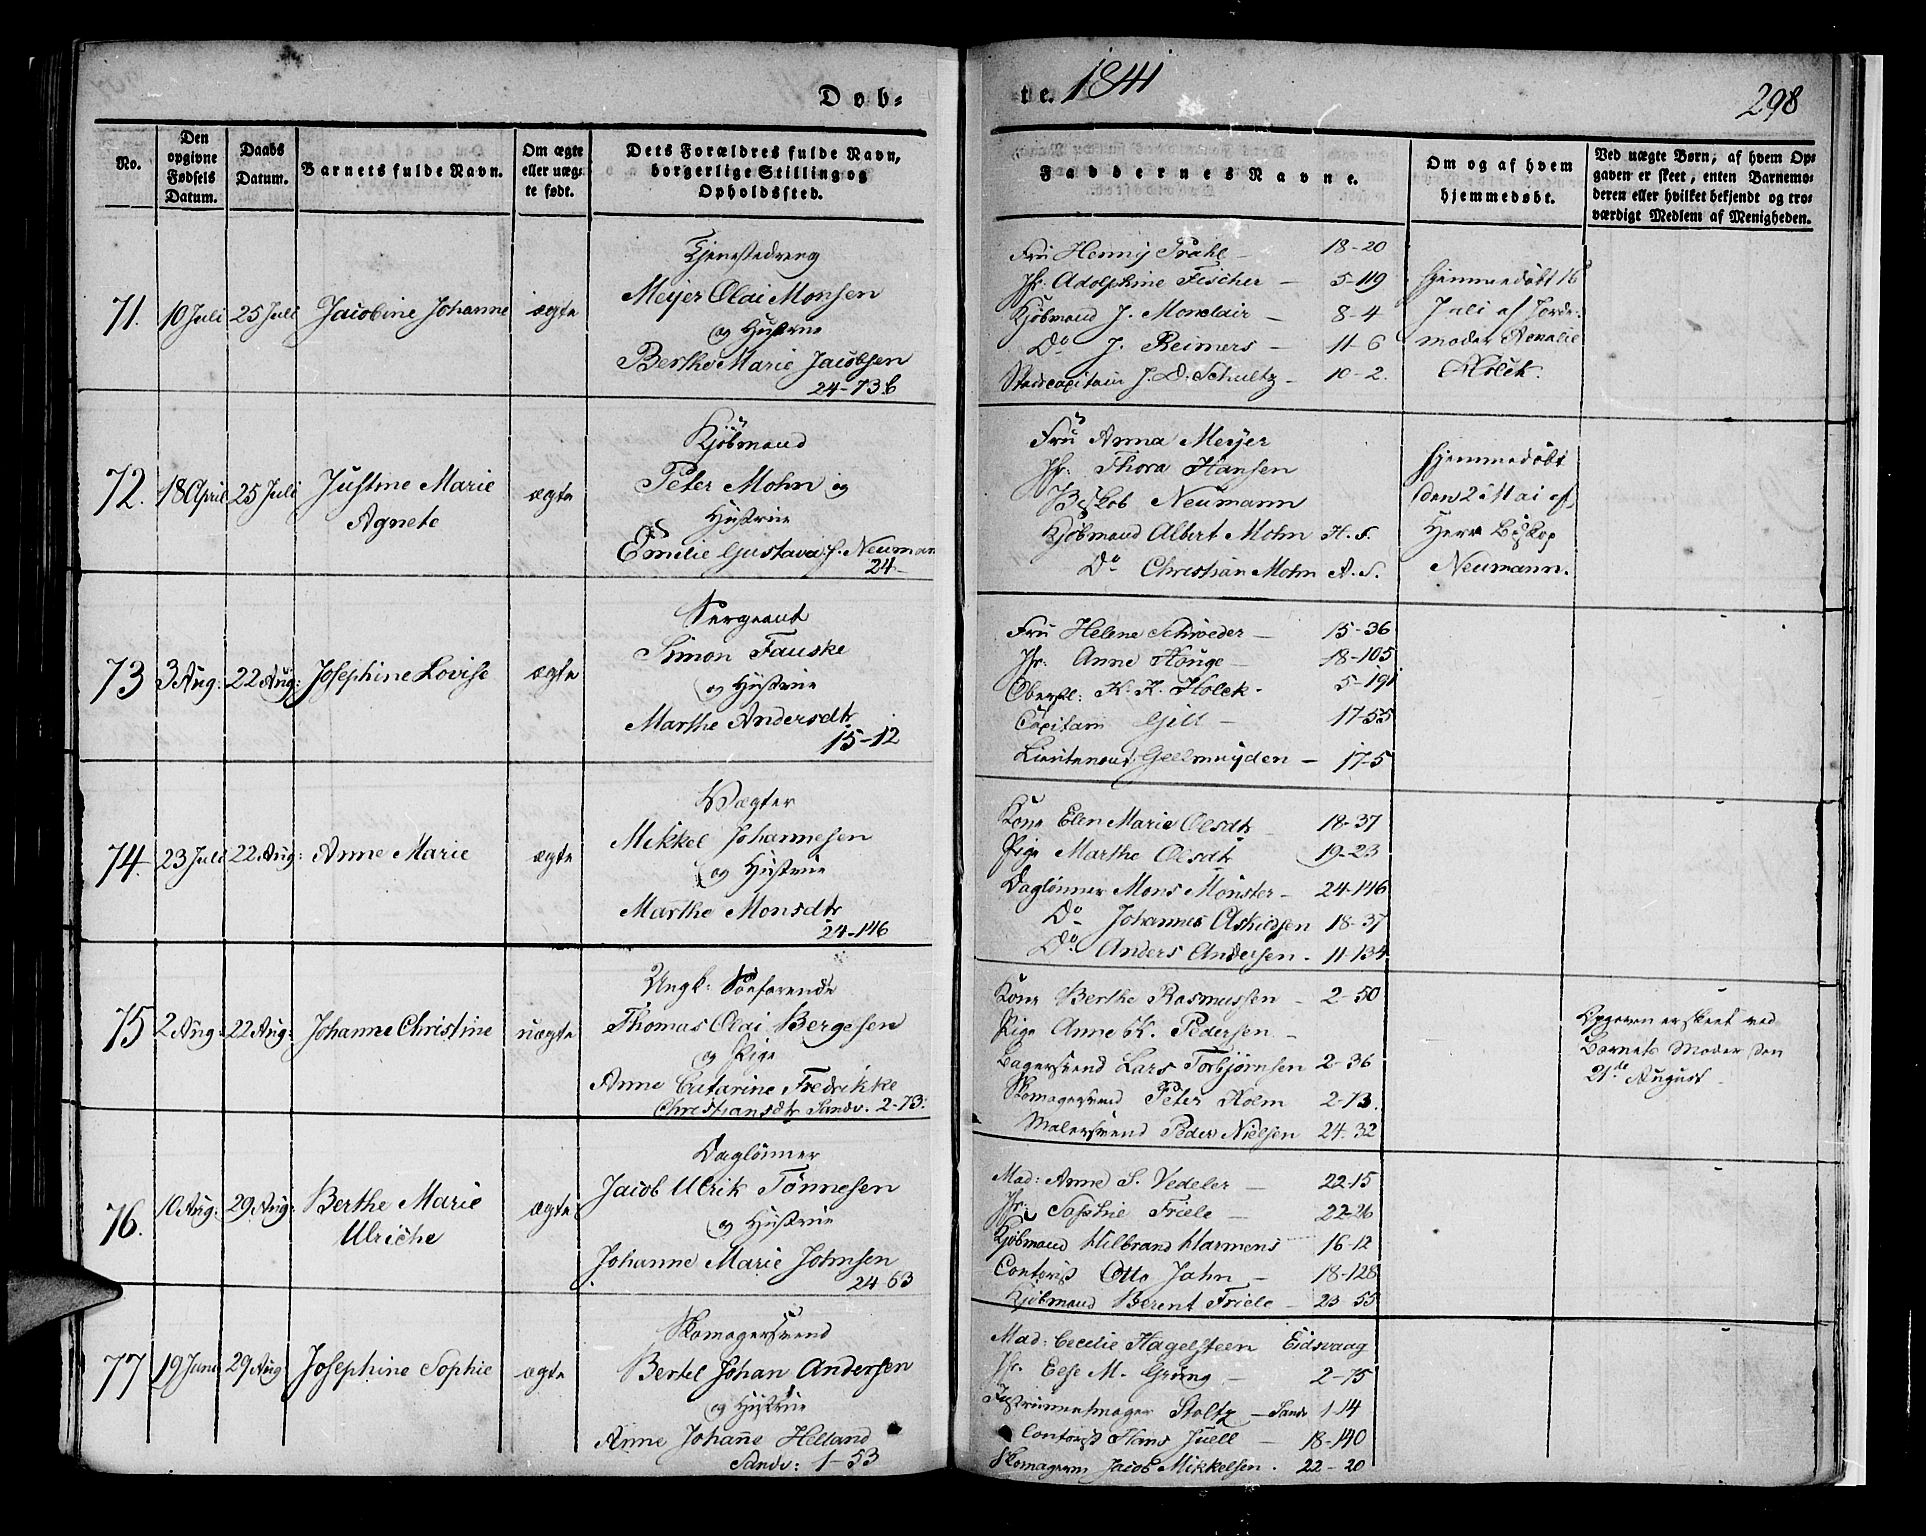 Døb-
te. 1841
298
No.
Den opgivne Fødsels Datum.
Daabs Datum.
Barnets fulde Navn.
Om ægte eller uægte født.
Dets Forældres fulde Navn, borgerlige Stilling og Opholdssted.
Faddernes Navne.
Om og af hvem hjemmedøbt.
Ved uægte Børn, af hvem Opgaven er skeet, enten Barnemoderen eller hvilket bekjendt og troværdigt Medlem af Menigheden.
71. 10 Juli 25 Juli Jacobine Johanne ægte
Tjenestedreng
Meyer Olai Monsen
og Hustrue
Berthe Marie Jacobsen
24-73 b
Fru Henny Prahl - 18-20
Jfr: Adolphine Fischer - 5-119
Kjøbmand J. Monclair - 8-4
Do J. Reimers - 11-6
Stadscapitain J. D. Schultz - 10-2.
Hjemmedøbt 16
Juli af Jorde-
moder Amalie
Holck.
72. 18 April 25 Juli Justine Marie
Agnete
ægte
Kjøbmand
Peter Mohn og
Hustrue
Emilie Gustava f. Neuman
24-
Fru Anna Meyer
Jfr: Thora Hansen
Biskop Neumann
Kjøbmand Albert Mohn H. S.
Do Christian Mohn A. S.
Hjemmedøbt
den 2 Mai af
Herr Biskop
Neumann.
73 3 Aug: 22 Aug: Josephine Lovise ægte
Sergeant
Simon Fauske
og Hustrue
Marthe Andersdtr
15-12
Fru Helene Schrøder - 15-36
Jfr: Anne Hauge - 18-105
Oberstl: K. K. Holck - 5-191
Capitain Gill - 17-55
Lieutenant Geelmuyden - 17-5
74. 23 Juli 22 Aug: Anne Marie ægte
Vægter
Mikkel Johannesen
og Hustrue
Marthe Monsdtr
24-146
Kone Elen Marie Olsdtr 18-37
Pige Marthe Olsdtr 19-23
Daglønner Mons Mønster - 24-146
Do Johannes Askildsen 18-37
Do Anders Andersen. 11-134
75 2 Aug: 22 Aug: Johanne Christine uægte
Ungk: Søefarende
Thomas Olai Bergesen
og Pige
Anne Catarine Fredrikke
Christiansdtr Sandv. 2-73:
Kone Berthe Rasmussen - 2-50
Pige Anne K. Pedersen -
Bagersvend Lars Torbjørnsen 2-36
Skomagersvend Peter Holm 2-73.
Malersvend Peder Nielsen 24-32
Opgaven er skeet ved
Barnets Moder den
21de August
76. 10 Aug: 29 Aug: Berthe Marie
Ulriche
ægte
Daglønner
Jacob Ulrik Tönnesen
og Hustrue
Johanne Marie Johnsen
24-63
Mad: Anne S. Vedeler - 22-15
Jfr: Sophie Friele - 22-26
Kjøbmand Hilbrand Harmens 16-12
Contorist Otto Jahn - 18-128
Kjøbmand Berent Friele - 23-55
77 19 Juni 29 Aug Josephine Sophie ægte
Skomagersvend
Bertel Johan Andersen
og Hustrue
Anne Johanne Helland
Sandv: 1-53
Mad: Cecilie Hagelsteen Eidsvaag
Jfr. Else M. Grøng - 2-75
Instrumentmager Stoltz - Sandv 1-14
Contorist Hans Juell - 18-140
Skomagersv Jacob Mikkelsen. 22-20